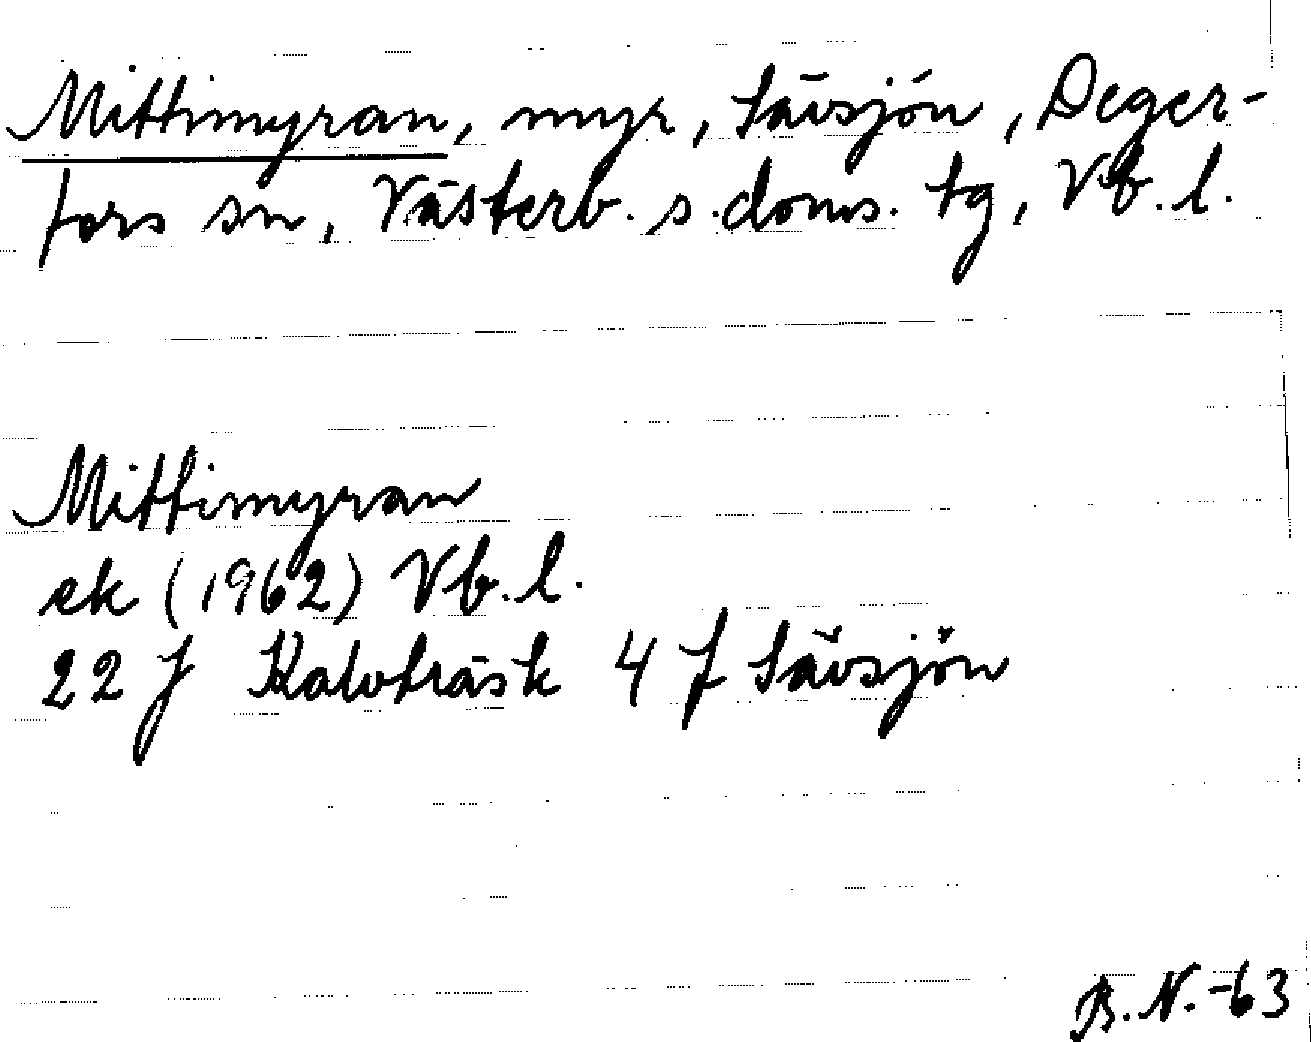 Mittimyran, myr, Sävsjön, Deger-
fors sn, Västerb. s. doms. tg, Vb. l.
Mittimyran
ek (1962) Vb. l.
22 J Kalvträsk 4 f Sävsjön
B. N. -63